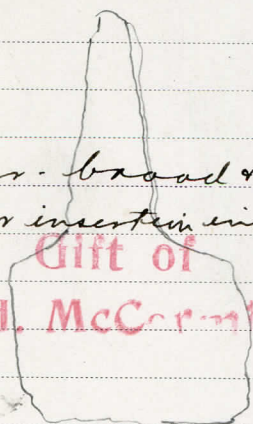 broad
insertion in
Gift of
McCorm